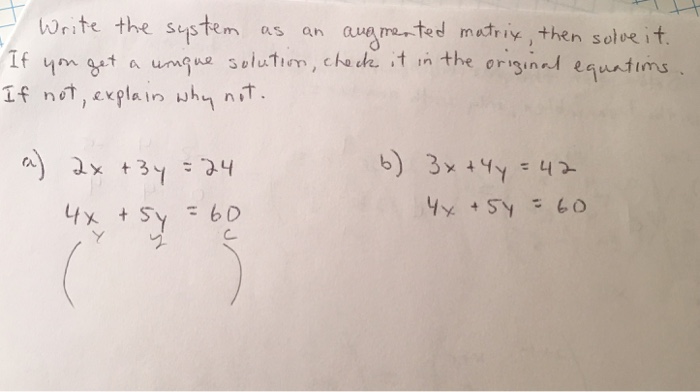 Write the system as an augmented matrix, then solve it.
If you get a unique solution, check it in the original equations.
If not, explain why not.
a) 2x + 3y = 24
4x + 5y = 60
b) 3x + 4y = 42
4x + 5y = 60
( )